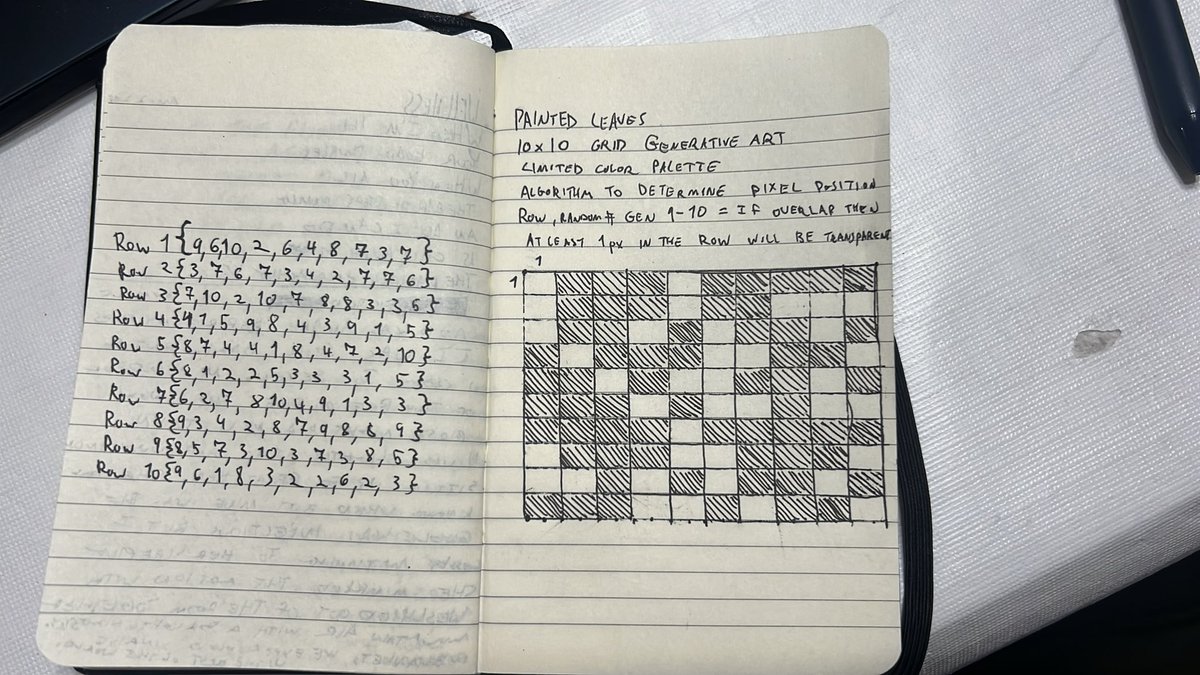 Row 1{9,6,10, 2, 6, 4, 8, 7, 3, 7}
Row 2{3, 7, 6, 7, 3, 4, 2, 7, 7, 6}
Row 3{7, 10, 2, 10, 7, 8, 8, 3, 3, 5}
Row 4{4, 1, 5, 9, 8, 4, 3, 9, 1, 5}
Row 5{8, 7, 4, 4, 1, 8, 4, 7, 2, 10}
Row 6{8, 1, 2, 2, 5, 3, 3, 3, 1, 5}
Row 7{6, 2, 7, 8, 10, 4, 9, 1, 3, 3}
Row 8{9, 3, 4, 2, 8, 7, 9, 8, 6, 9}
Row 9{8, 5, 7, 3, 10, 3, 7, 3, 8, 5}
Row 10{9, 6, 1, 8, 3, 2, 2, 6, 2, 3}
PAINTED LEAVES
10x10 GRID GENERATIVE ART
LIMITED COLOR PALETTE
ALGORITHM TO DETERMINE PIXEL POSITION
ROW, RANDOM # GEN 1-10 = IF OVERLAP THEN
AT LEAST 1px IN THE ROW WILL BE TRANSPARENT
1
1